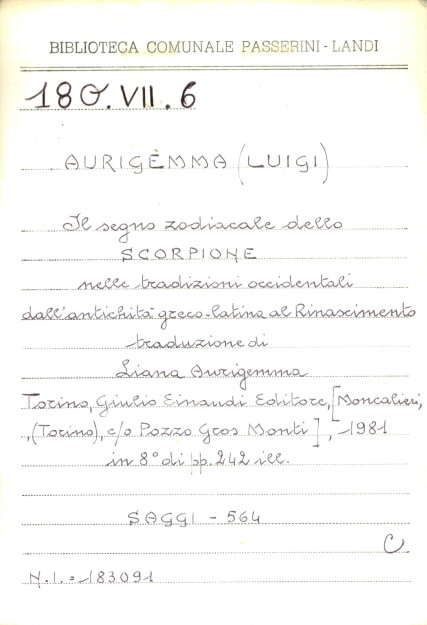 BIBLIOTECA COMUNALE PASSERINI - LANDI
180.VII.6
AURIGÈMMA (LUIGI)
Il segno zodiacale dello
SCORPIONE
nelle tradizioni occidentali
dall'antichità greco-latina al Rinascimento
traduzione di
Liana Aurigemma
Torino, Giulio Einaudi Editore, [Moncalieri,
(Torino), c/o Pozzo Gros Monti], 1981
in 8° di pp. 242 ill.
SAGGI - 564
C
N.I. = 183091